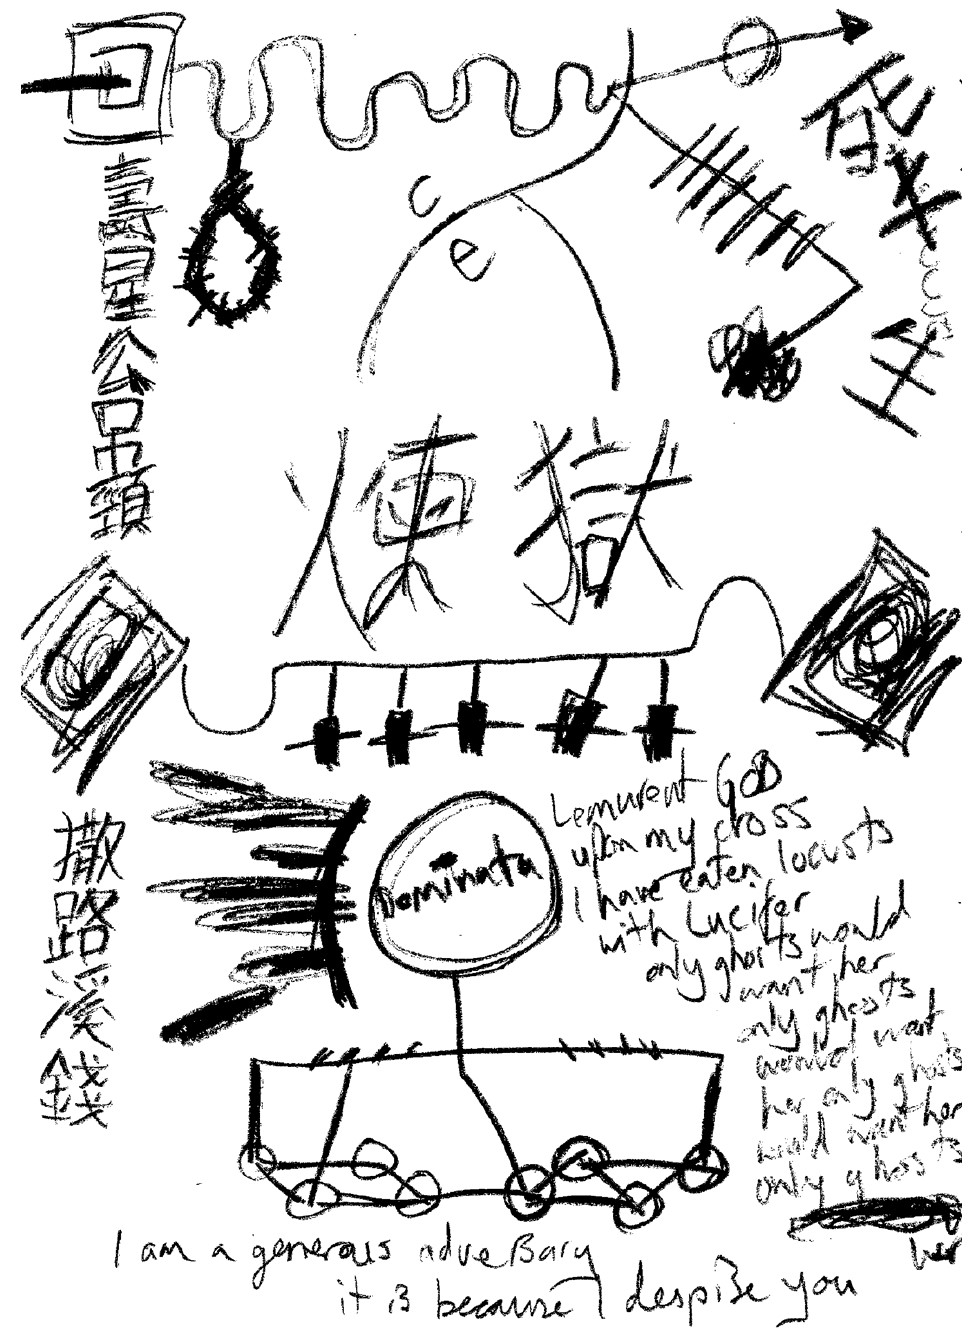 壽星公吊頸
發生
煉獄
撒路溪錢
Dominata
Lemurent GOD
upon my cross
I have eaten locusts
with Lucifer
only ghosts would
want her
only ghosts
would want
her only ghosts
would want her
only ghosts
her
I am a generous adveBary
it is because I despise you